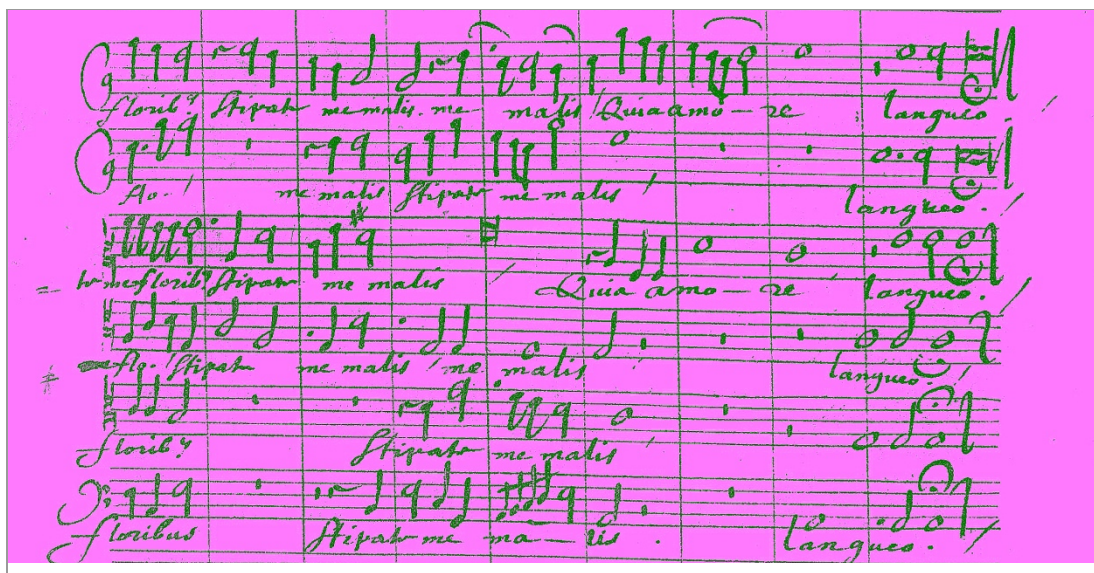 floribꝰ stipate me malis. me malis / Quia amo - re langueo. /
flo. / me malis stipate me malis / langueo. /
te me floribꝰ stipate me malis / Quia amo - re langueo. /
flo. / stipate me malis / me malis langueo. /
floribꝰ stipate me malis /
floribus stipate me ma - lis. langueo. /